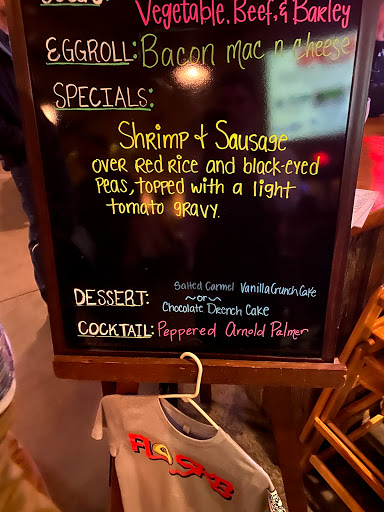 Vegetable, Beef, & Barley
EGGROLL: Bacon mac n cheese
SPECIALS:
Shrimp & Sausage
over Red Rice and black-eyed
peas, topped with a light
tomato gravy.
DESSERT: Salted Carmel Vanilla Crunch Cake
~or~
Chocolate Deench Cake
COCKTAIL: Peppered Arnold Palmer